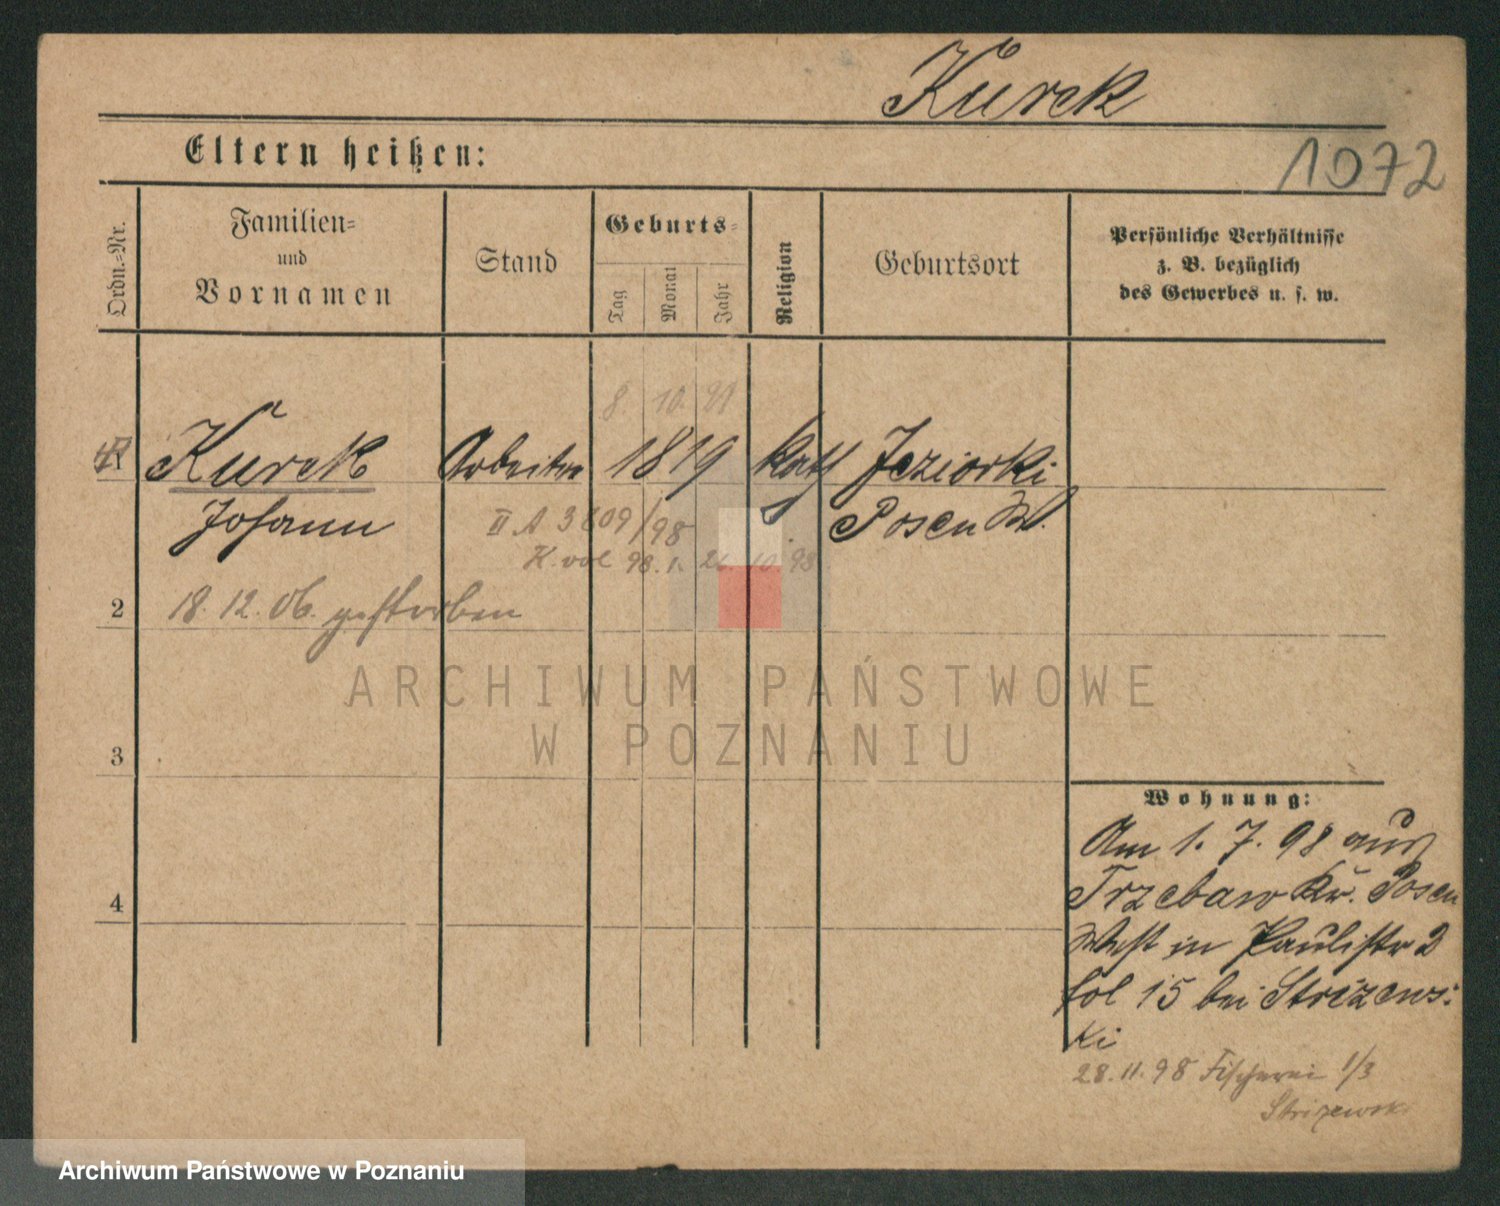 Kurek
Eltern heißen:
1072
Ordn.=Nr.
Familien=
und
Vornamen
Stand
Geburts=
Tag
Monat
Jahr
Religion
Geburtsort
Persönliche Verhältnisse
z. B. bezüglich
des Gewerbes u. s. w.
8 10
1
Kurek Arbeiter 1819 kath Jeziorki
Johann Posen W.
II A 3609/98
98. 1. 26. 10. 98
2
18. 12. 06. gestorben
3
4
ARCHIWUM PAŃSTWOWE
W POZNANIU
Wohnung:
Am 1. 7. 98 aus
Trzebaw Kr. Posen
West in Paulistr 2
bei Strizews=
ki
28. 11. 98 Fischerei 1/3
Strizewski
Archiwum Państwowe w Poznaniu